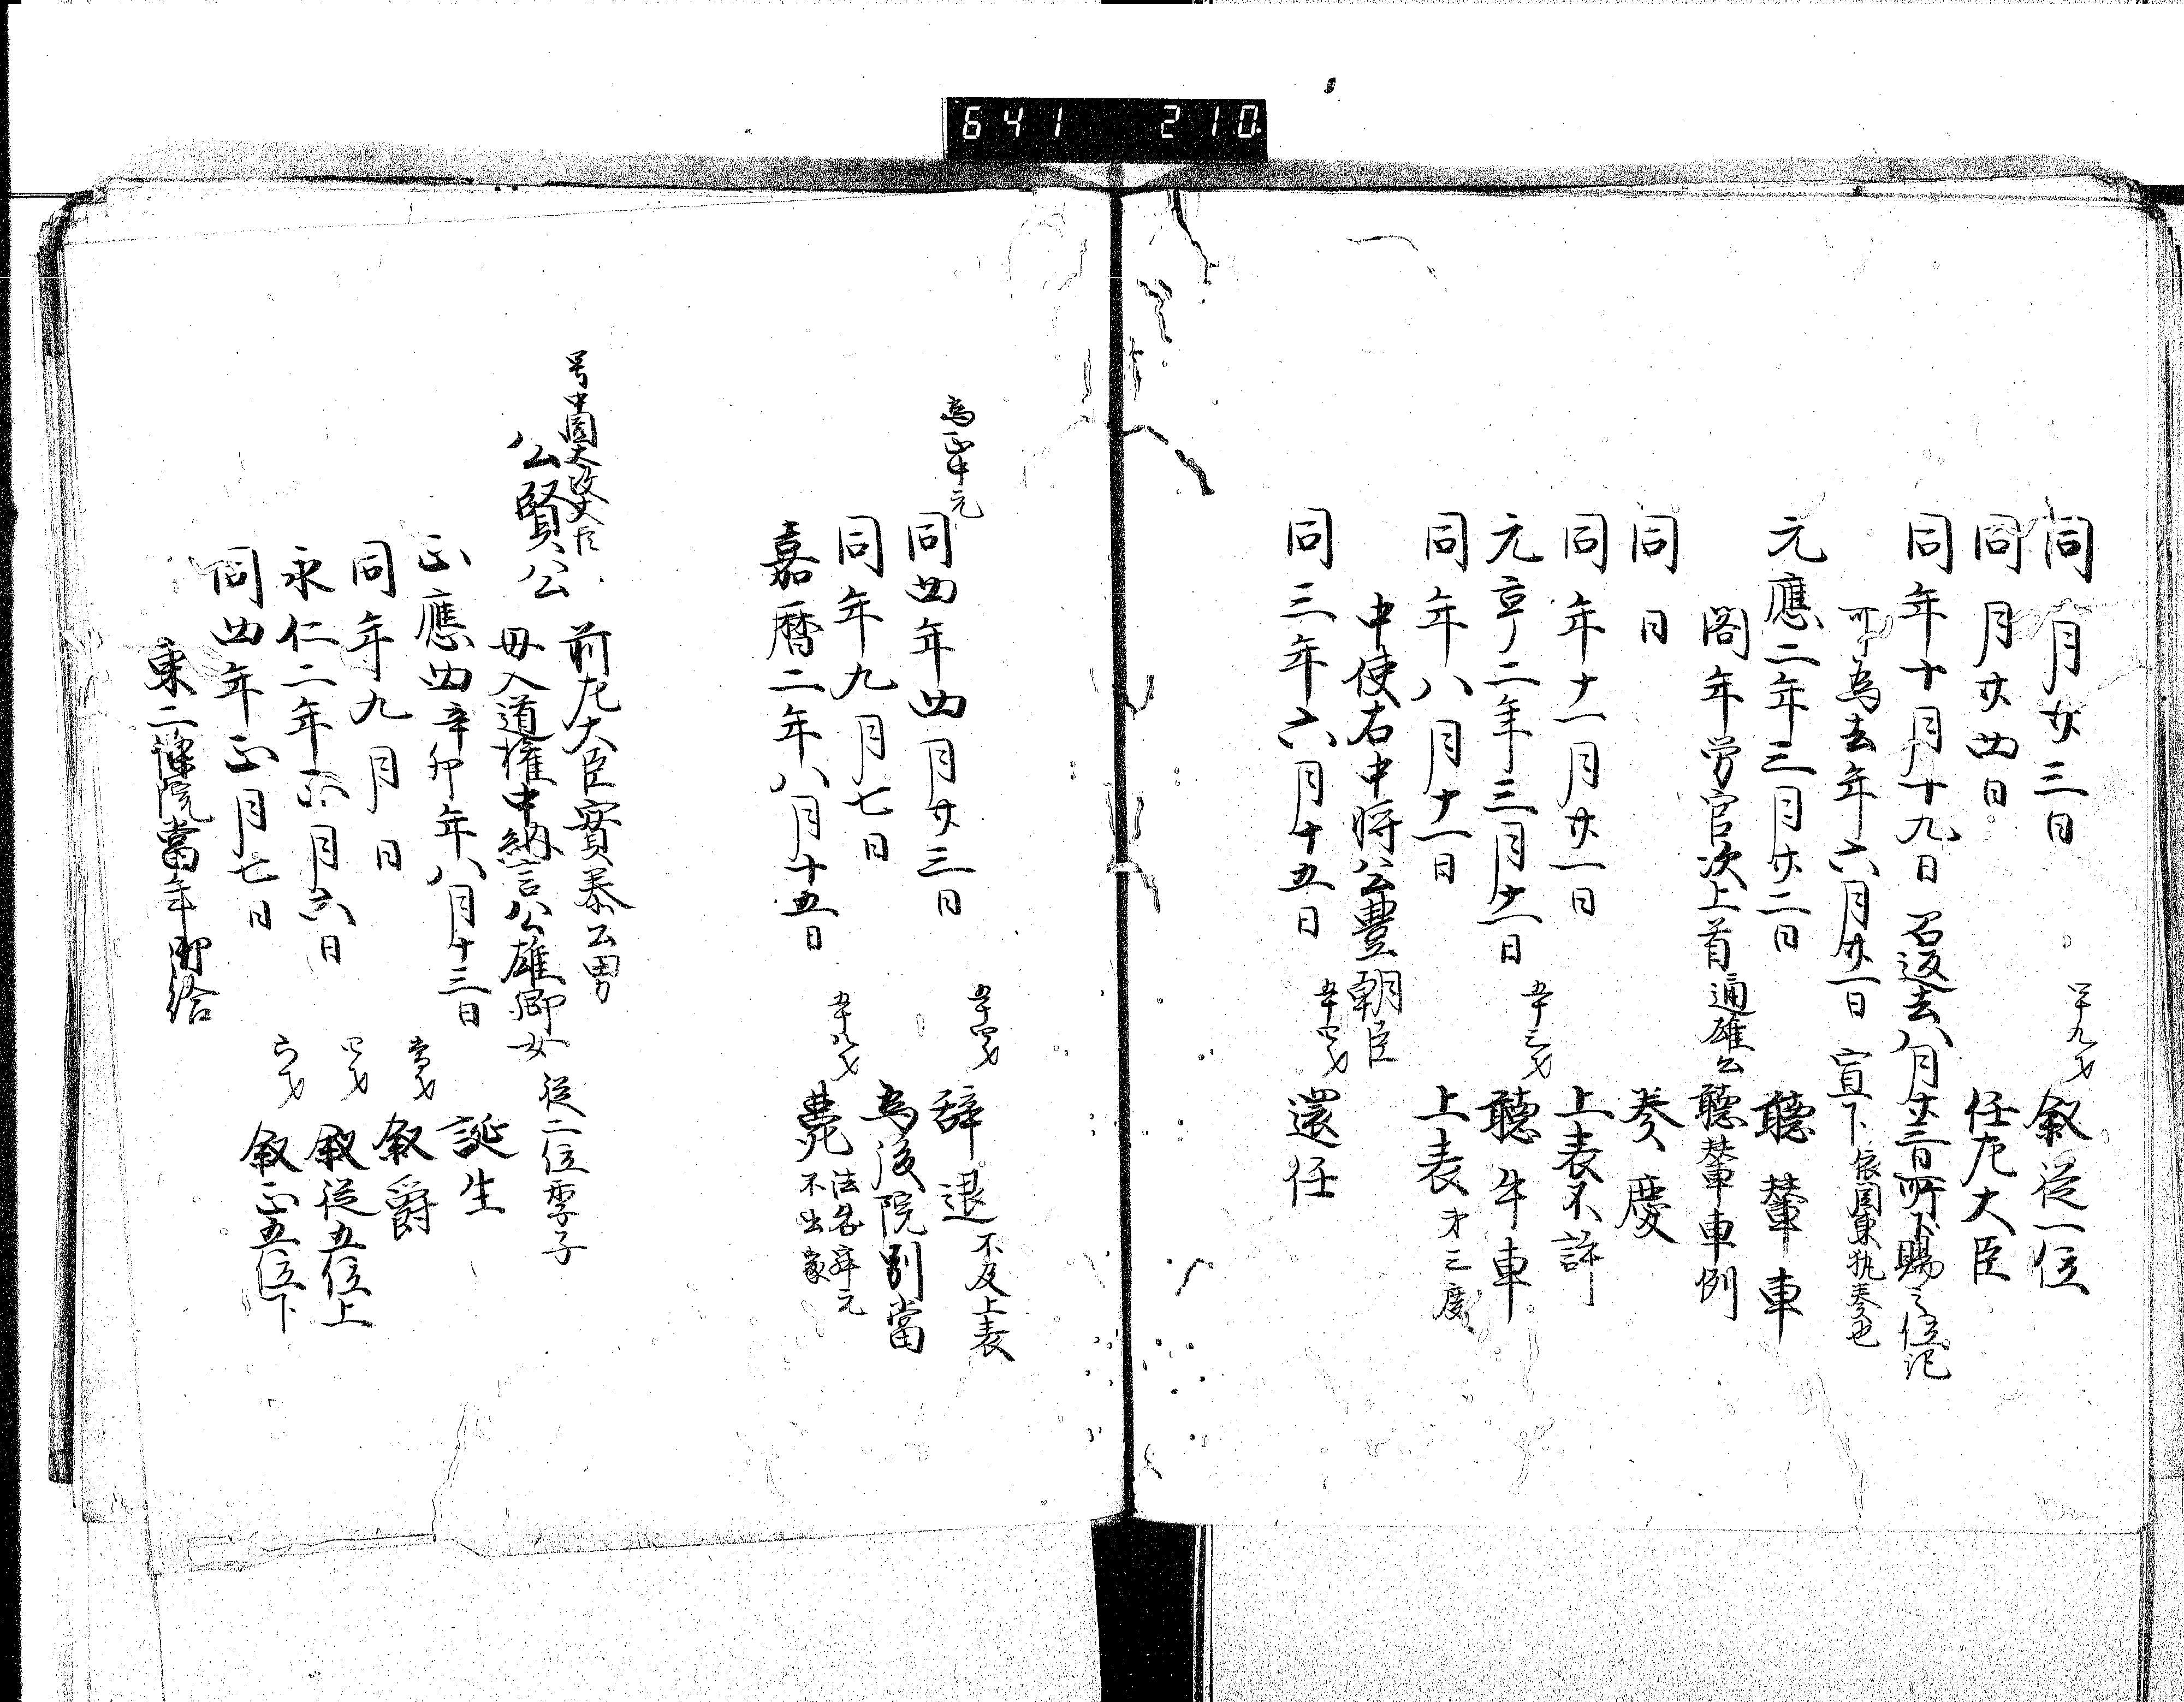 641 210
同月廿三日 四十九才 叙従一位
同月廿四日 任左大臣
同年十月十九日 召返去八月廿三日所下賜之位記
可為去年六月廿一日 宣下 依関東執奏也
元應二年三月廿二日 聽輦車
閤年労官次上首通雄公聽輦車例
同日 奏慶
同年十一月廿一日 上表不許
元亨二年三月十一日 五十三才 聽牛車
同年八月十一日 上表 才三度
中使右中将公豊朝臣
同三年六月十五日 五十四才 還任
為正中元
同四年四月廿三日 五十四才 辞退 不及上表
同年九月七日 為後院別當
嘉暦二年八月十五日 五十八才 薨 法名 元 不出家
号中園太政大臣
公賢公 前左大臣實泰公男
母入道權中納言公雄卿女 従二位季子
正應四辛卯年八月十三日 誕生
同年九月日 当才 叙爵
永仁二年正月六日 四才 叙従五位上
同四年正月七日 六才 叙正五位下
東二條院當年御給